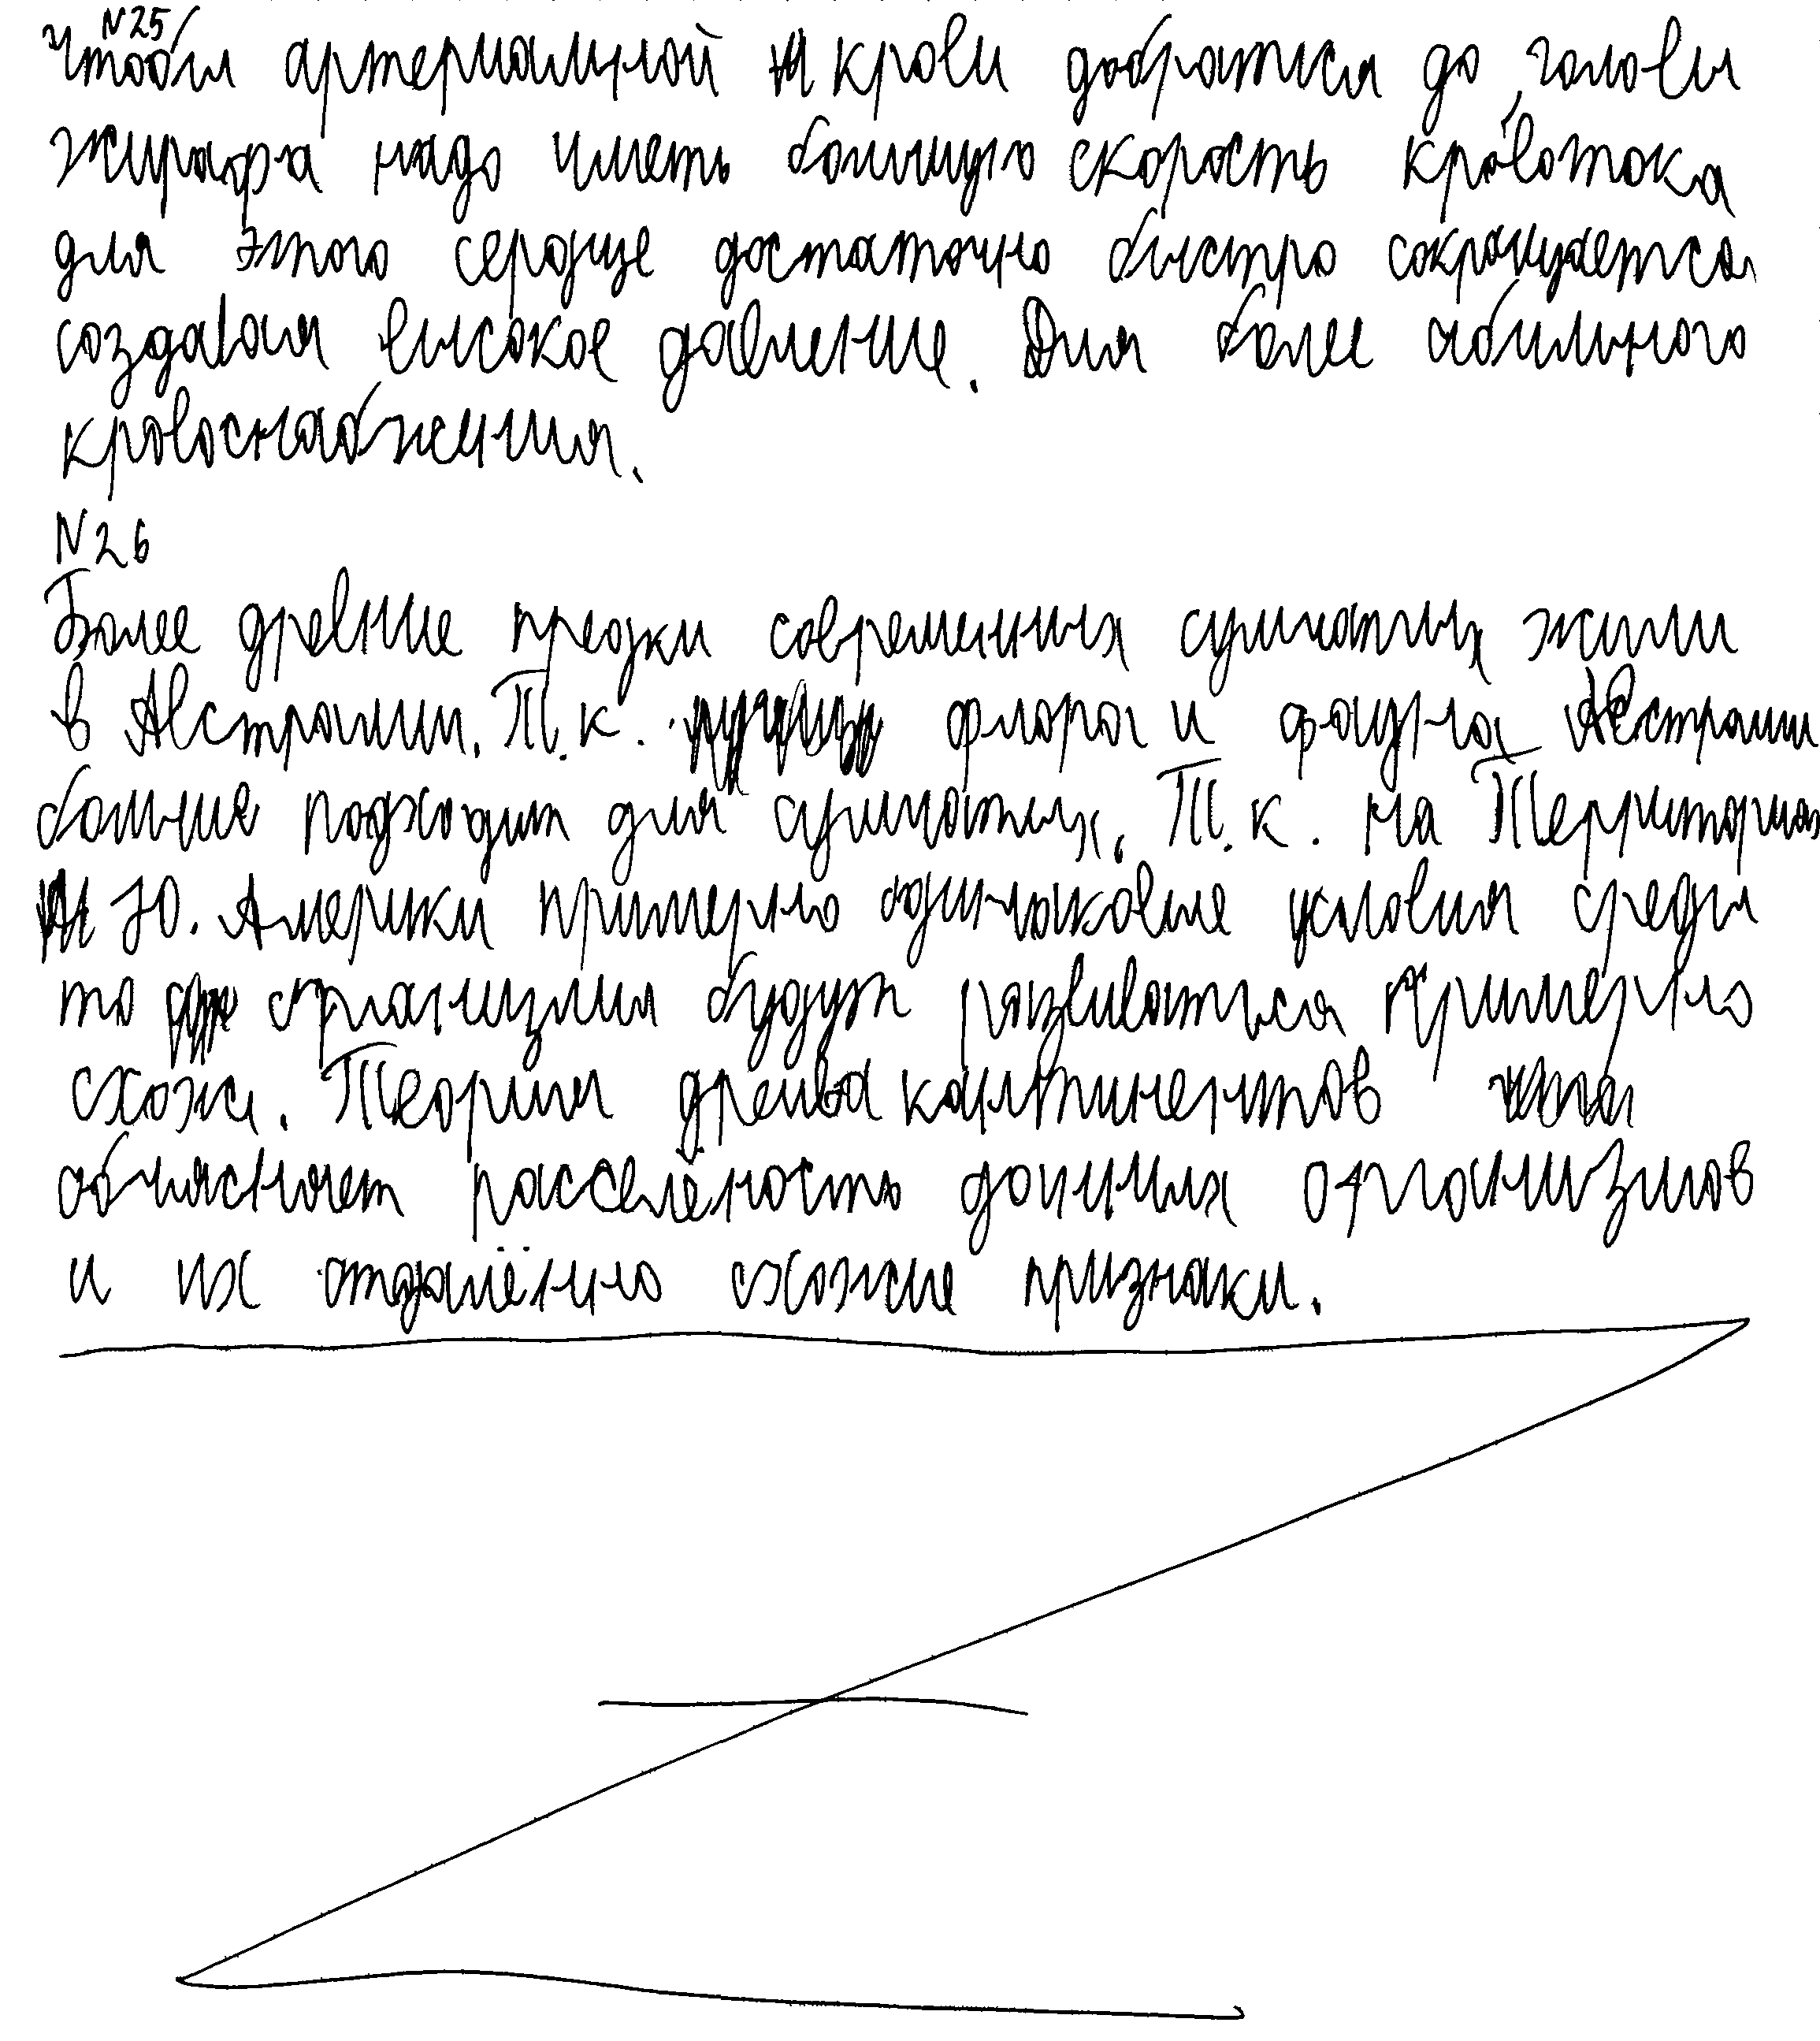 N25
Чтобы артериальной крови добраться до головы
жирафа надо иметь большую скорость кровотока
для этого сердце достаточно быстро сокращается
создавая высокое давление. Для более обильного
кровоснабжения.
N26
Более древние предки современных сумчатых жили
в Австралии. Т.к. флора и фауна Австралии
больше подходит для сумчатых. Т.к. на Территориях
Ю. Америки примерно одинаковые условия среды
то организмы будут развиваться примерно
схоже. Теория дрейва континентов
объясняет расселёность данных организмов
и их отдалённо схожие признаки.